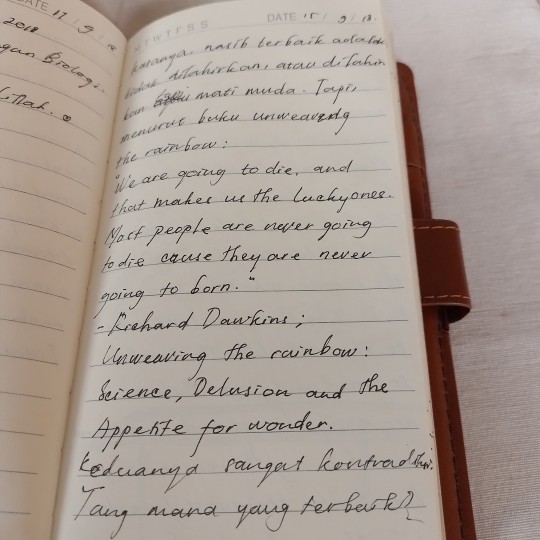 DATE 17 / 9 / 18
2018
gan Biologi
MTWTFSS DATE 17 / 9 / 18.
katanya, nasib terbaik adalah
tidak dilahirkan, atau dilahir
kan mati muda. Tapi,
menurut buku unweaving
the rainbow:
"We are going to die, and
that makes us the lucky ones.
Most people are never going
to die cause they are never
going to born."
- Richard Dawkins;
Unweaving the rainbow:
Science, Delusion and the
Appetite for wonder.
Keduanya sangat kontradiksi.
Yang mana yang terbaik?